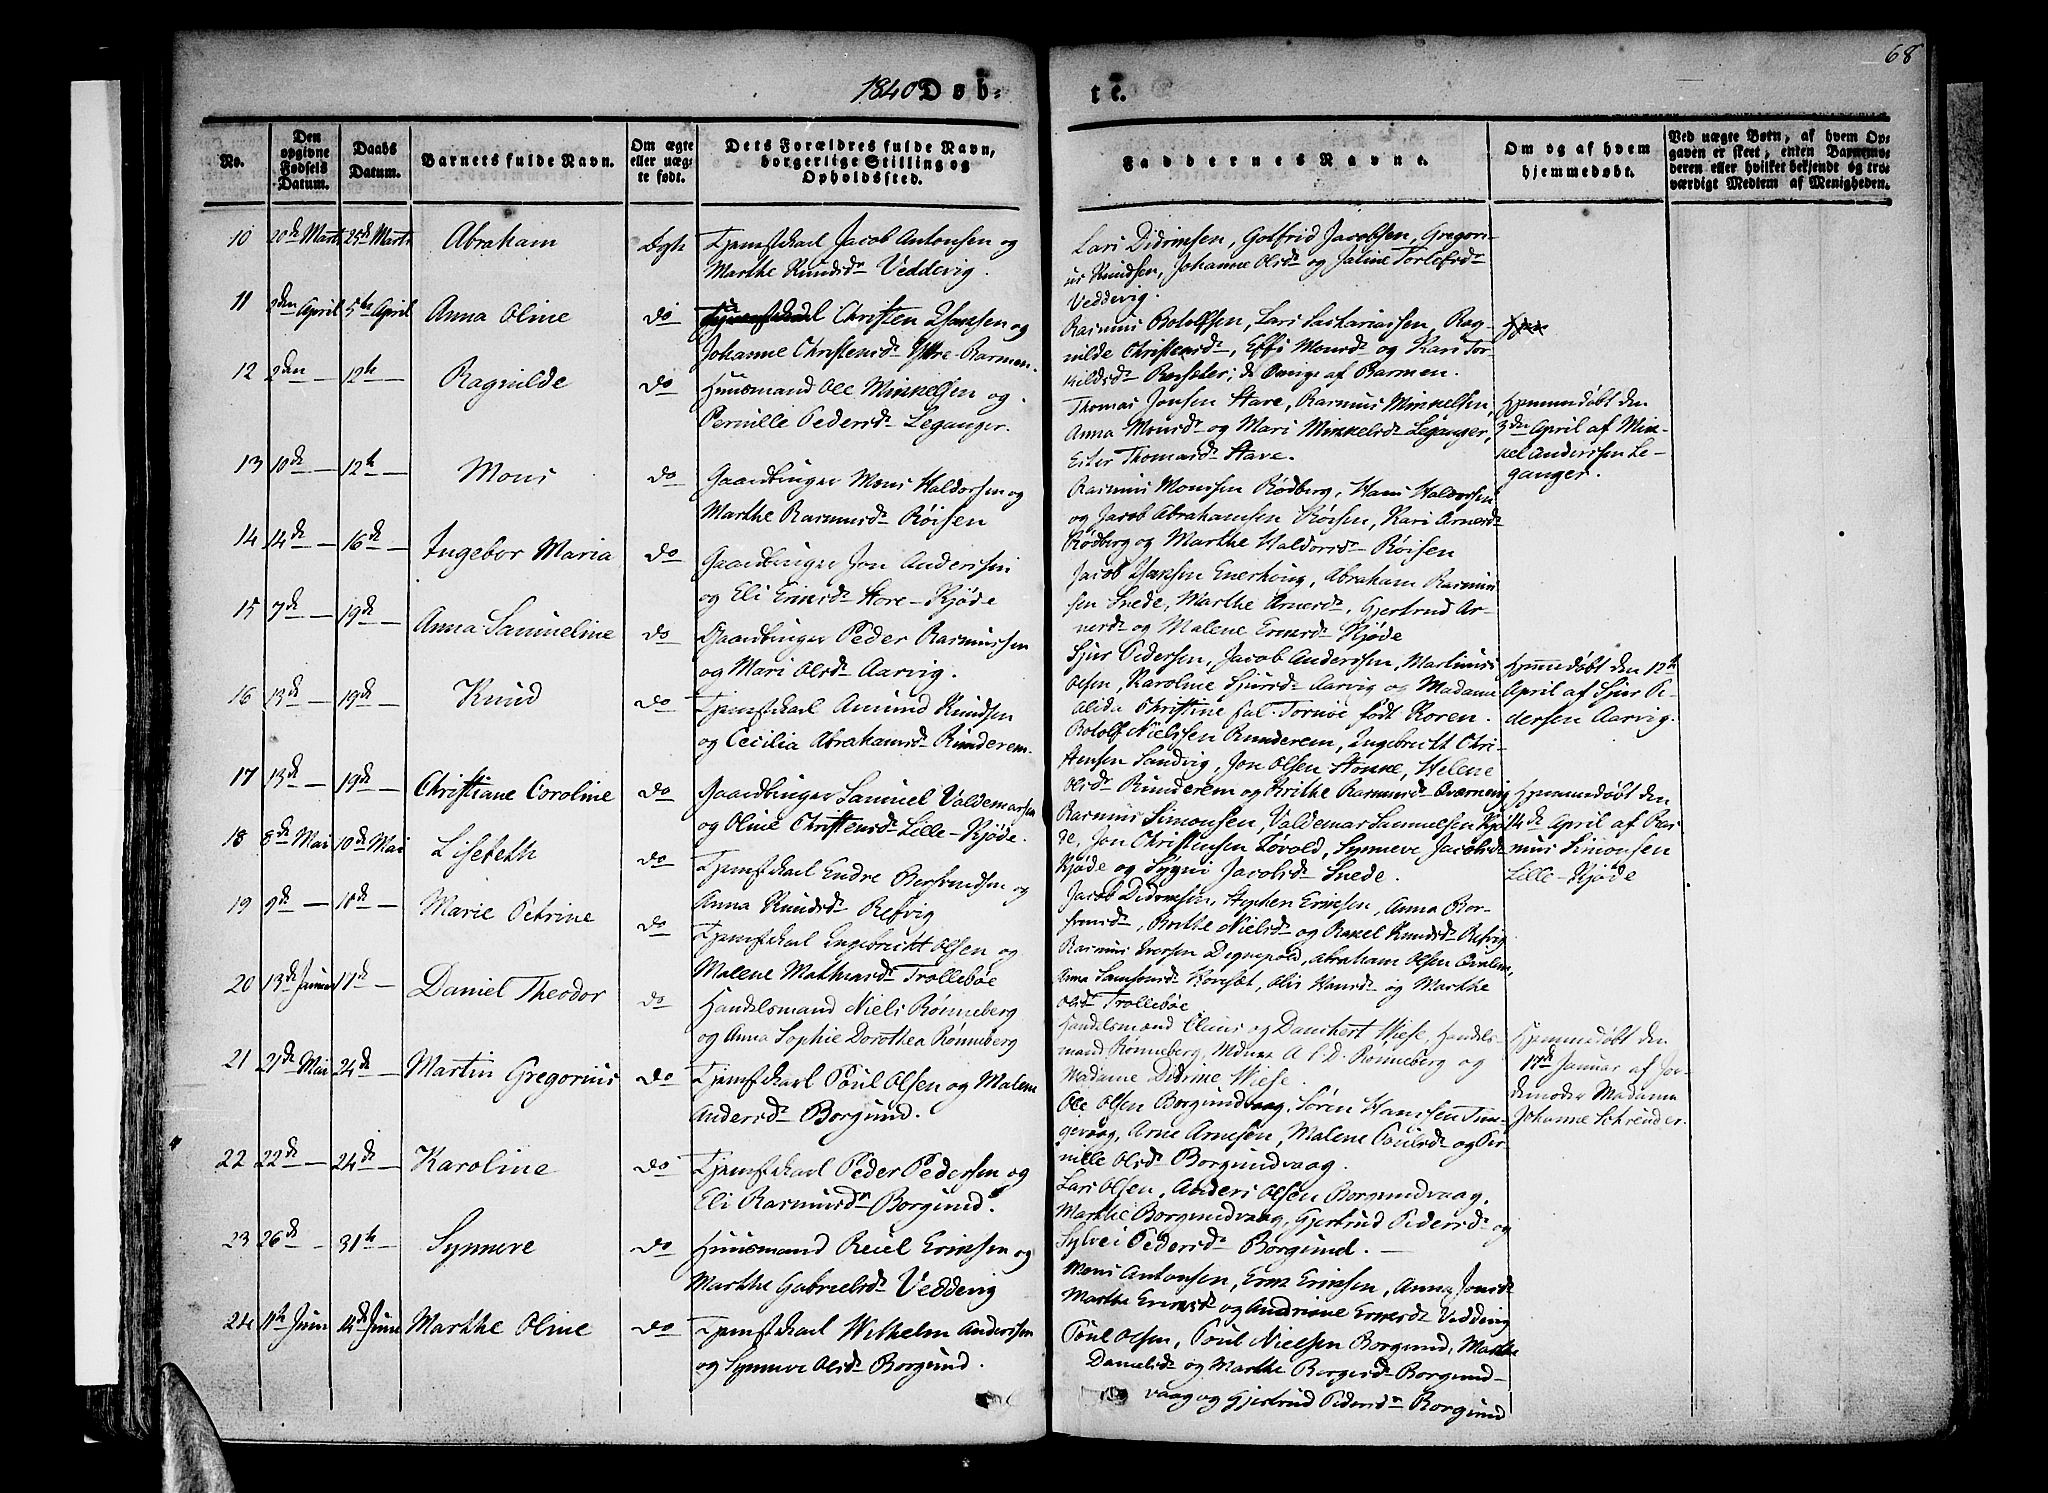 68
1840 Døb-
te.
No.
Den opgivne Fødsels Datum.
Daabs Datum.
Barnets fulde Navn.
Om ægte eller uægte født.
Dets Forældres fulde Navn, borgerlige Stilling og Opholdssted.
Faddernes Navne.
Om og af hvem hjemmedøbt.
Ved uægte Børn, af hvem Opgaven er skeet, enten Barnemoderen eller hvilket bekjendt og troværdigt Medlem af Menigheden.
10 20de Marts 25de Marts Abraham Ægte Tjenestkarl Jacob Antonsen og
Marthe Knudsdr Veddevig.
Lars Didriksen, Gotfrid Jacobsen, Gregori-
us Knudsen, Johanne Olsdr og Jaline Torlefsdr
Veddevig.
11 2den April 5te April Anna Oline do Christen Hansen og
Johanne Christensdr Ytre-Barmen.
Rasmus Botolfsen, Lars Sachariassen, Rag-
nilde Christensdr, Monsdr og Kari Tor-
kildsdr; de Øvrige af Barmen.
12 2den — 12te — Ragnilde do Huusmand Ole Mikkelsen og
Pernille Pedersdr Leganger.
Thomas Jonsen Stave, Rasmus Mikkelsen,
Anna Monsdr og Mari Mikkelsdr Leganger,
Ester Thomasdr Stave.
Hjemmedøbt den
3den April af Mik-
kel Anderssen Le-
ganger.
13 10de — 12te — Mons do Gaardbruger Mons Haldorsen og
Marthe Rasmusdr Røisen
Rasmus Monssen Rødberg, Hans Haldorsen
og Jacob Abrahamsen Røisen, Kari Arnesdr
Rødberg og Marthe Haldorsdr Røisen
14 14de — 16de — Ingebor Maria do Gaardbruger Jon Anderssen
og Eli Ernsdr Store-Kjøde
Jacob Hansen Enerhoug, Abraham Rasmus-
sen Snede, Marthe Arnesdr, Gjertrud Ar-
nesdr og Malene Ernsdr Kjøde
15 7de — 19de — Anna Samueline do Gaardbruger Peder Rasmussen
og Mari Olsdr Aarvig.
Sjur Pedersen, Jacob Anderssen, Martinus
Olsen, Karoline Sjursdr Aarvig og Madame
Alida Christine Tornøe født Koren.
Hjemmedøbt den 12te
April af Sjur Pe-
dersen Aarvig.
16 13de — 19de — Knud do Tjenestkarl Amund Knudsen
og Cecilia Abrahamsdr Runderem.
Botolf Nielssen Runderem, Ingebrect Chri-
stensen Sandvig, Jon Olsen, Helene
Olsdr Runderem og Brithe Rasmusdr
17 13de — 19de — Christiane Caroline do Gaardbruger Samuel Valdemarsen
og Oline Christensdr Lille-Kjøde.
Rasmus Simonsen, Valdemar Samuelsen Kjø-
de, Jon Christensen Løvold, Synneve Jacobsdr
Kjøde og Sygni Jacobsdr Snede.
Hjemmedøbt den
14de April af Ras-
mus Simonsen
Lille-Kjøde
18 8de Mai 10de Mai Lisebeth do Tjenestkarl Endre og
Anna Knudsdr Refvig
Jacob Didriksen, Stephen Eriksen, Anna
Brithe Nielsdr og Rakel Knudsdr Refvig
19 9de — 10de — Marie Petrine do Tjenestkarl Ingebricht Olsen og
Malene Mathiasdr Trollebøe
Rasmus Iversen Degnepold, Abraham Olsen
Anna Samsonsdr, Olis Hansdr og Marthe
Olsdr Trollebøe
20 13de Januar 17de — Daniel Theodor do Handelsmand Niels Rønneberg
og Anna Sophie Dorothea Rønneberg
Handelsmænd Claus og Danchert Wiese, Handels-
mand Rønneberg, A. S. D. Rønneberg og
Madame Didrine Wiese.
Hjemmedøbt den
17de Januar af Jor-
demoder Madame
Johanne Schreuder.
21 21de Mai 24de — Martin Gregorius do Tjenestkarl Poul Olsen og Malene
Andersdr Borgund.
Ole Olsen Borgundvaag, Søren Hanssen Tun-
gevaag, Arne Arnesen, Malene Poulsdr og Per-
nille Olsdr Borgundvaag.
22 22de — 24de — Karoline do Tjenestkarl Peder Pedersen og
Eli Rasmusdr Borgund.
Lars Olsen, Anders Olsen Borgundvaag,
Marthe Borgundvaag, Gjertrud Pedersdr og
Sylvei Pedersdr Borgund. —
23 26de — 31te — Synneve do Huusmand Reiel Eriksen og
Marthe Gabrielsdr Veddevig
Mons Antonsen, Eriksen, Anna Jonsdr
Marthe og Andriane Veddevig
24 11te Juni 14de Juni Marthe Oline do Tjenestkarl Wilhelm Anderssen
og Synneve Olsdr Borgund.
Poul Olsen, Poul Nielssen Borgund, Marthe
Danielsdr og Marthe Borgersdr Borgund-
vaag og Gjertrud Pedersdr Borgund